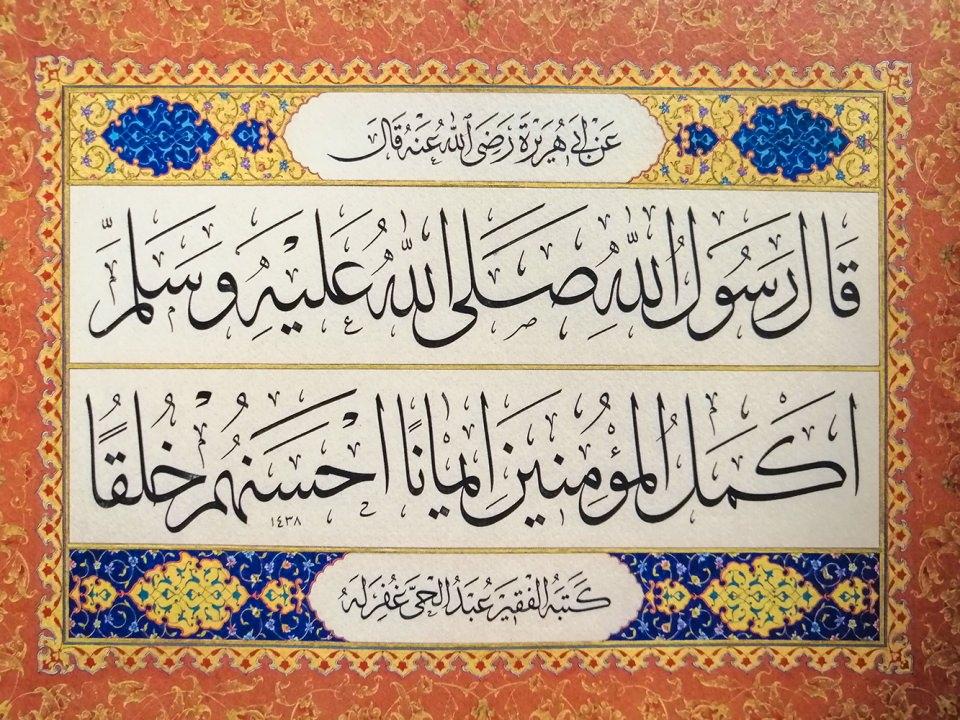 عَنْ أَبِي هُرَيْرَةَ رَضَى ٱللّٰهُ عَنْهُ قَالَ
قَالَ رَسُولُ اللّٰهِ صَلَى اللّٰهُ عَلَيْهِ وَسَلَّمَ
اَكْمَلُ الْمُؤْمِنِينَ اِيمَانًا اَحْسَنُهُمْ خُلُقًا
١٤٣٨
كَتَبَهُ الْفَقِيرُ عَبْدُ الْحَيِّ غُفِرَلَهُ